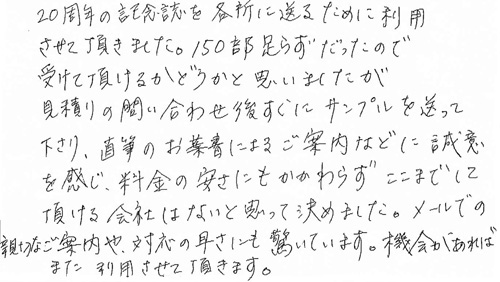 20周年の記念誌を各所に送るために利用
させて頂きました。150部足らずだったので
受けて頂けるかどうかと思いましたが
見積りの問い合わせ後すぐにサンプルを送って
下さり、直筆のお葉書によるご案内などに誠意
を感じ、料金の安さにもかかわらずここまでして
頂ける会社はないと思って決めました。メールでの
親切なご案内や、対応の早さにも驚いています。機会があれば
また利用させて頂きます。